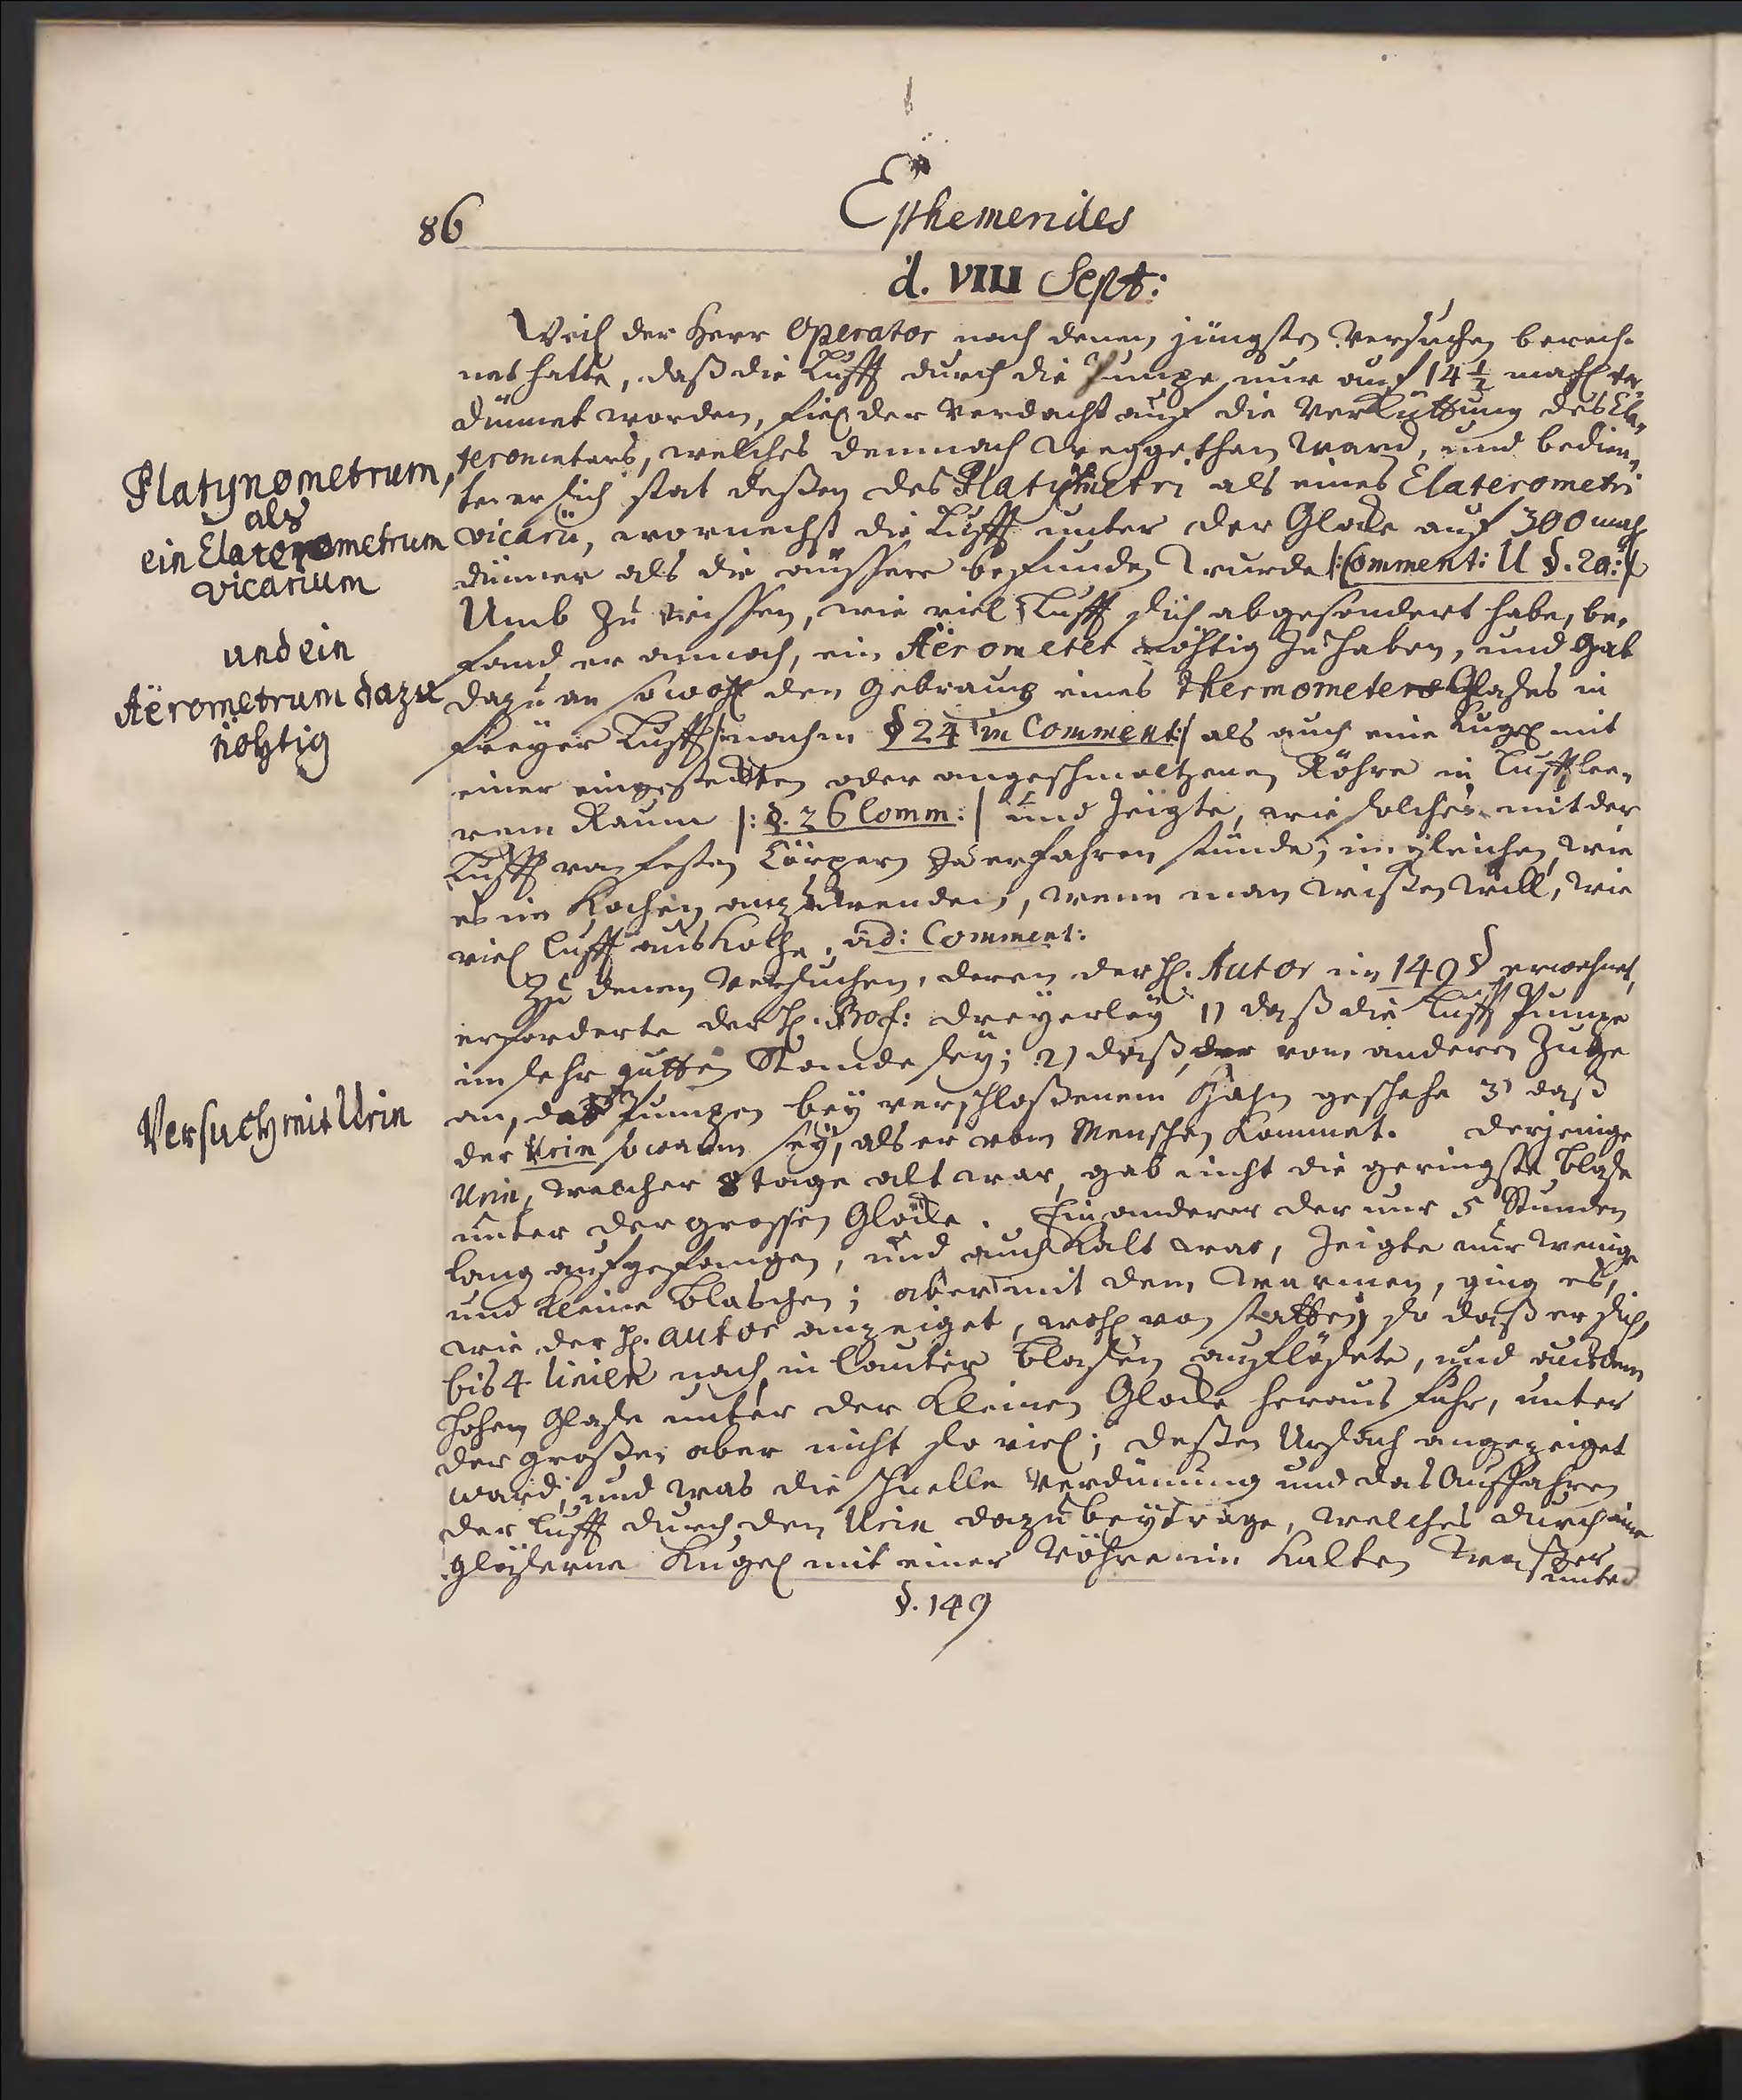 86
Ephemerides
d. VIII Sept:
Weil der Herr Operator nach denen jüngsten Versuchen berech-
net hatte, daß die Lufft durch die Pumpe nur auf 14 1/2 mahl ver
dünnet worden, fiel der Verdacht auf die Verküttung des Ela,
terometers, welches demnach weggethan ward, und bedien,
te er sich stat deßen des Platynometri als eines Elaterometri
vicarii, wornechst die Lufft unter der Glocke auf 300 mahl
dünner als die äussere befunden wurde |: Comment: U §. 20:|
Umb zu wissen, wie viel Lufft sich abgesondert habe, be,
fand er annoch, ein Aërometer nöhtig zu haben, und gab
dazu an sowohl den Gebrauch eines thermometer Glases in
freyer Lufft |: nach §24 in Comment:| als auch eine Kugel mit
einer eingeseilten oder angeschmoltzenen Röhre in Lufftlee,
rem Raum |: §. 26 Comm: | und zeigte, wie solches mit der
Lufft von festen Cörpern zu erfahren stünde; imgleichen, wie
es im Kochen anzuwenden, wenn man wißen will, wie
viel Lufft auskoche. ad: Comment:
Zu denen Versuchen, deren der H. Autor im 149 § erwehnet,
erforderte der H. Prof: dreyerley 1) daß die Lufft Pumpe
im sehr gutten Stande sey; 2) daß vom anderen Zuge
an, das Pumpen bey verschloßenem Hahn geschehe 3) daß
der Urin so warm sey, als er vom Menschen kommet. Derjenige
Urin, welcher 8 tage alt war, gab nicht die geringste Blase
unter der grossen Glocke. Ein anderer der nur 5 Stunden
lang aufgefangen, und auch kalt war, zeigte nur wenige
und kleine Blaschen; aber mit dem warmen, ging es,
wie der H. Autor anzeiget, wohl von statten, so daß er sich,
bis 4 linien nach, in lauter Blasen auflösete, und aus dem
hohen Glase unter der kleinen Glocke heraus fuhr, unter
der großen aber nicht so viel; deßen Ursach angezeiget
ward, und was die schnelle Verdünnung und das Auffahren
der Lufft durch den Urin dazu beytrage, welches durch eine
gläserne Kugel mit einer Röhre im kalten Waßer,
unter
§. 149
Platynometrum,
als
ein Elaterometrum
vicarium
und ein
Aërometrum dazu
nöhtig
Versuch mit Urin